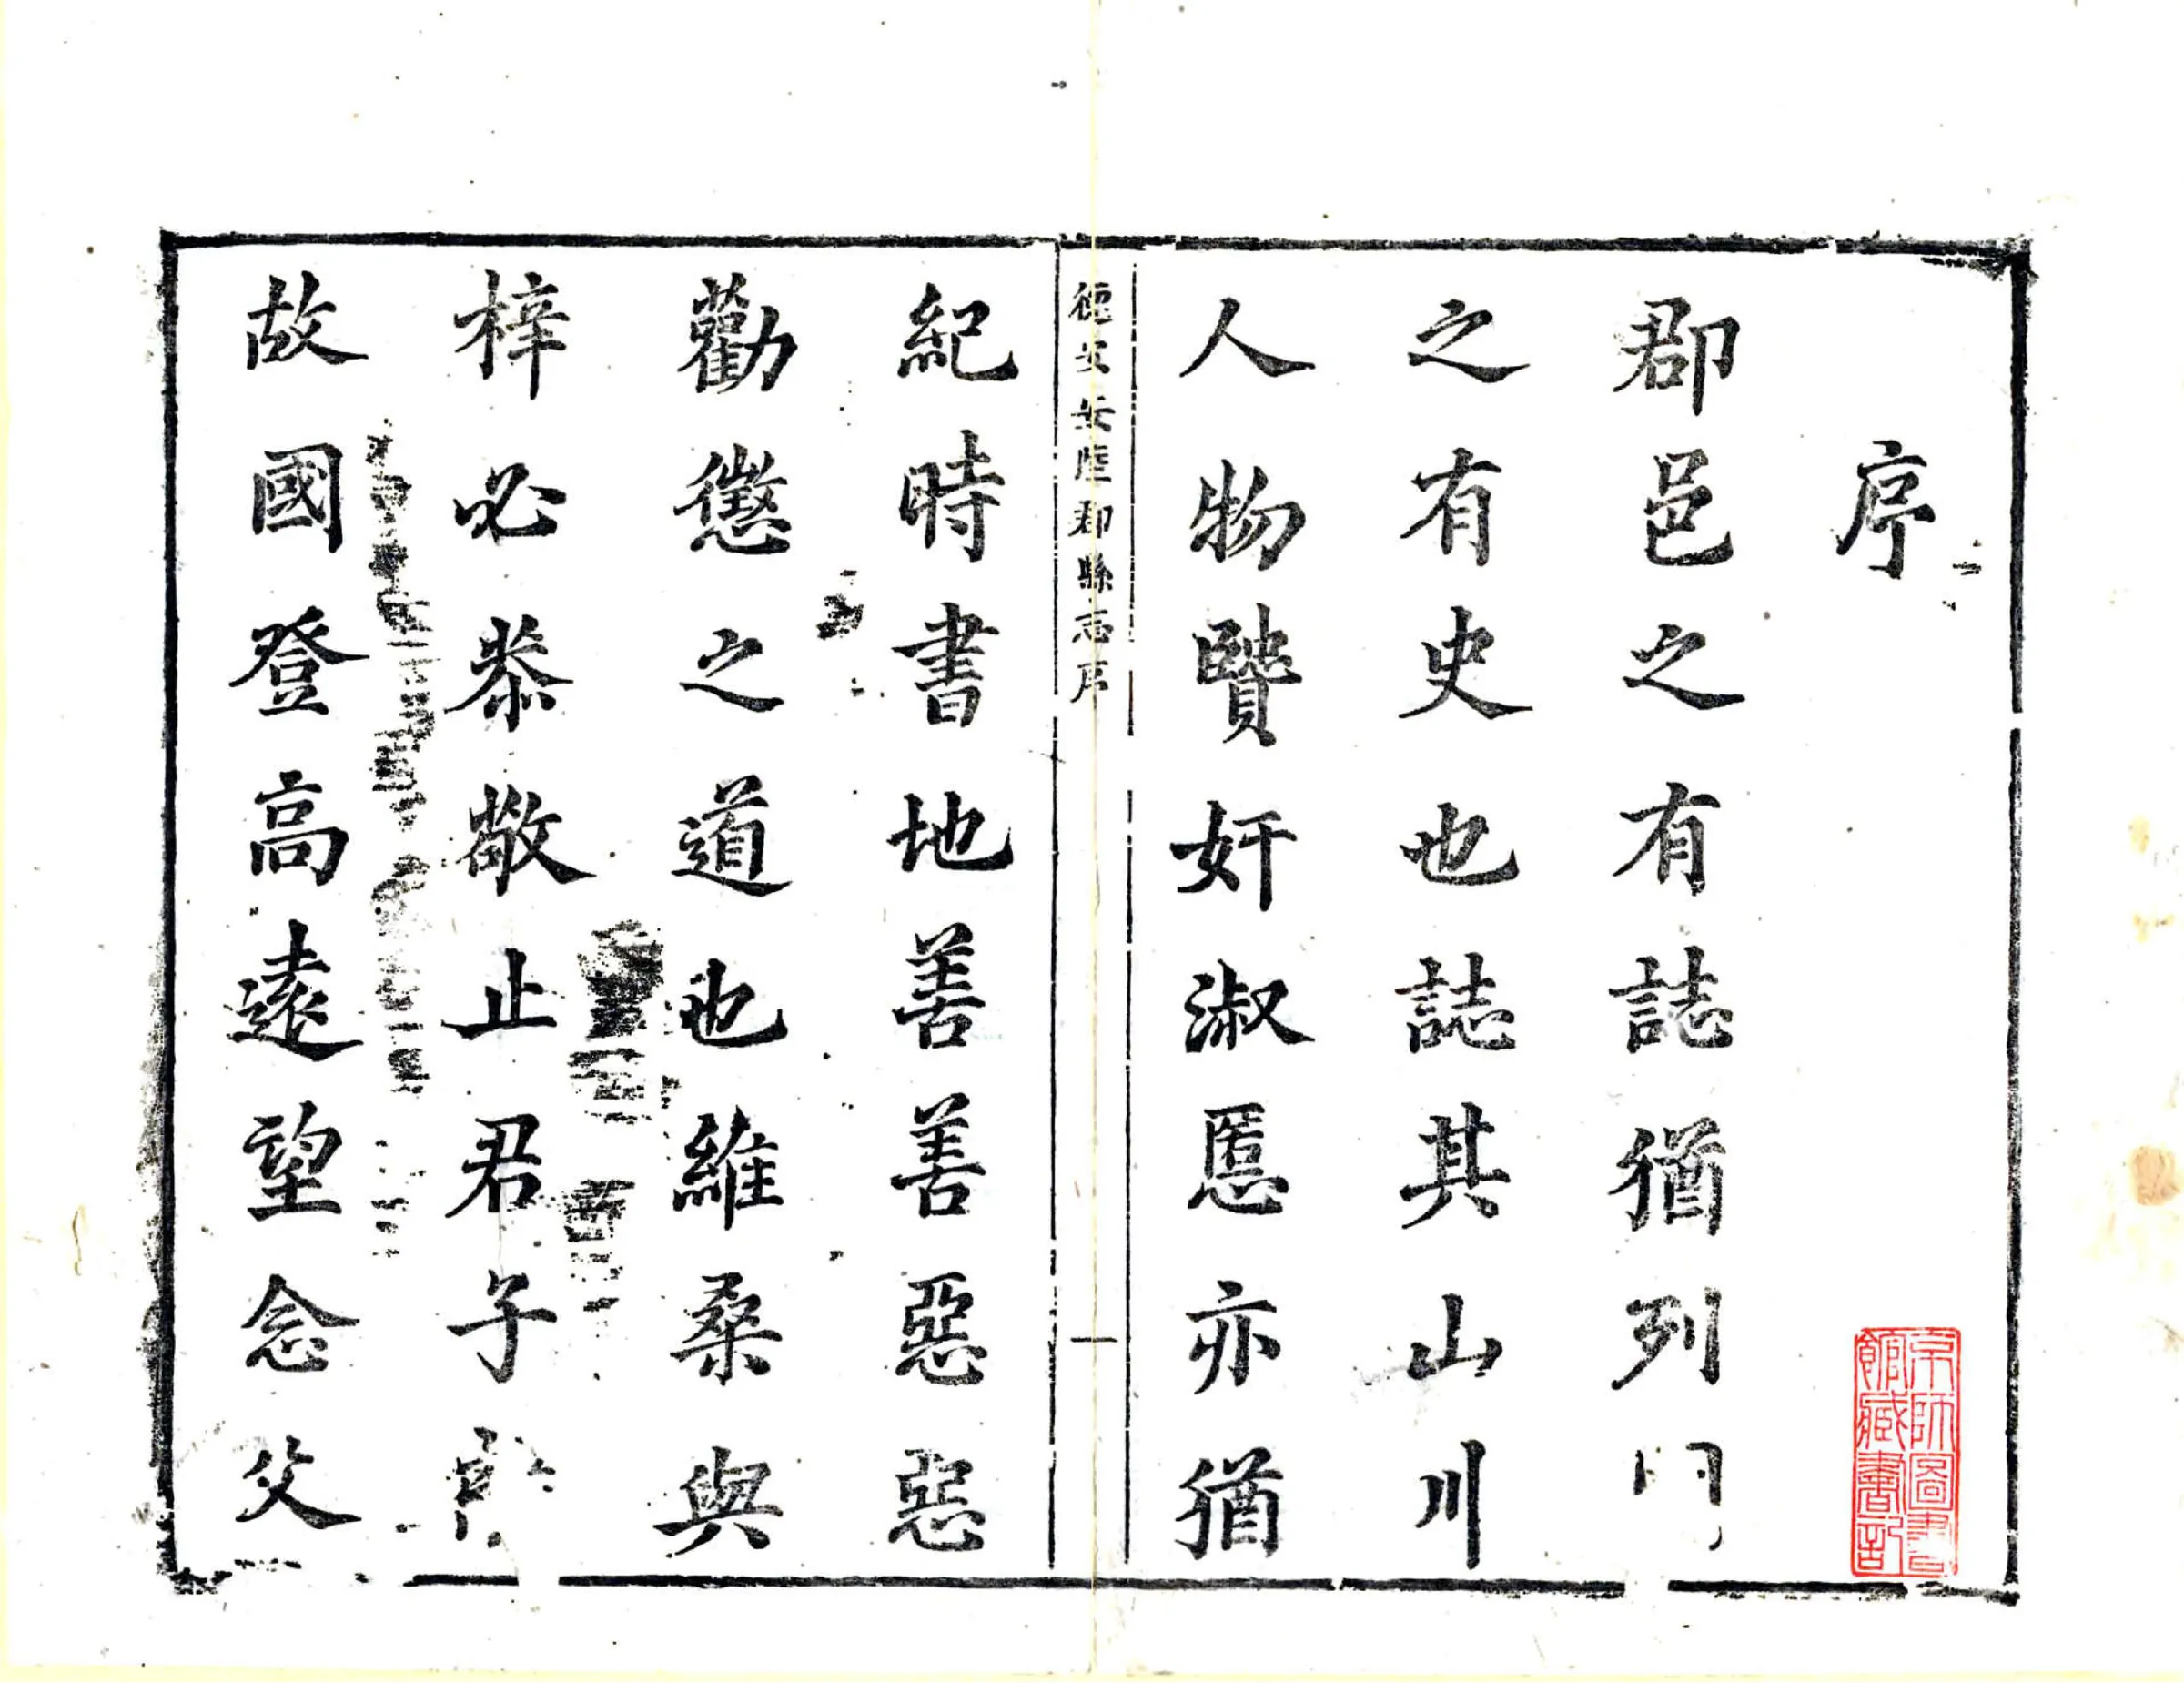 序
郡邑之有誌猶列
之有史也誌其山川
人物賢奸淑慝亦猶
德安安陸郡縣志序
一
紀時書地善善惡惡
勸懲之道也維桑與
梓必恭敬止君子
故國登高遠望念父
京師圖書
館藏書記